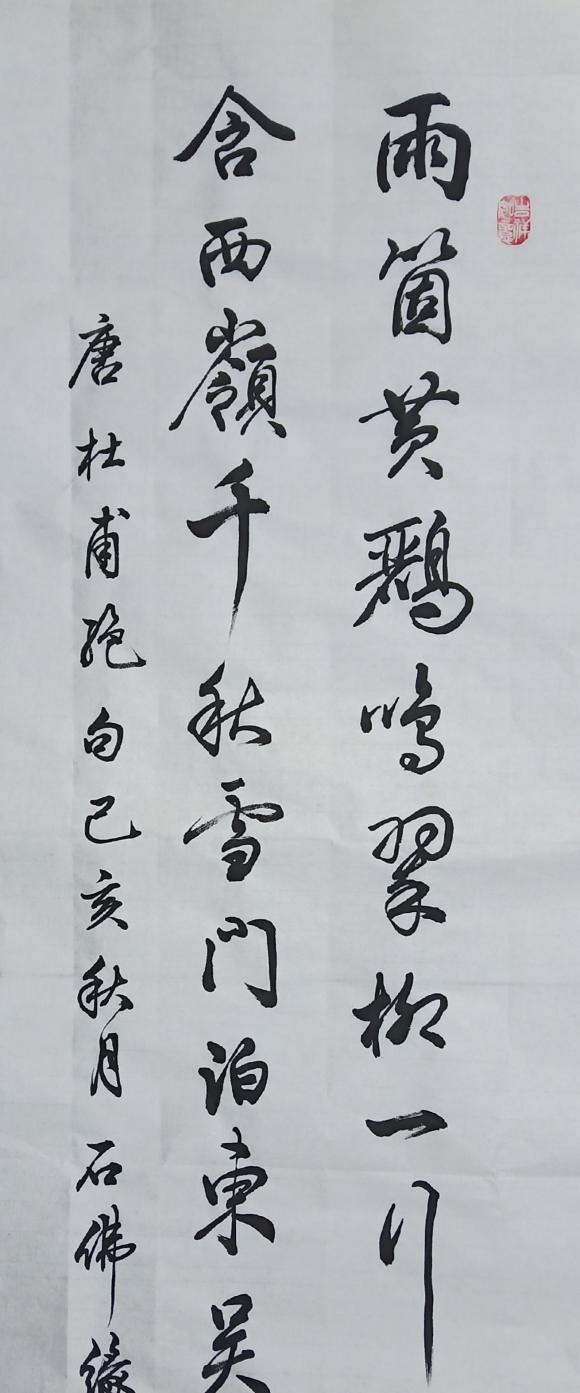 吉祥如意
兩箇黄鸝鳴翠柳一行
含西嶺千秋雪門泊東吴
唐杜甫絶句己亥秋月石佛緣